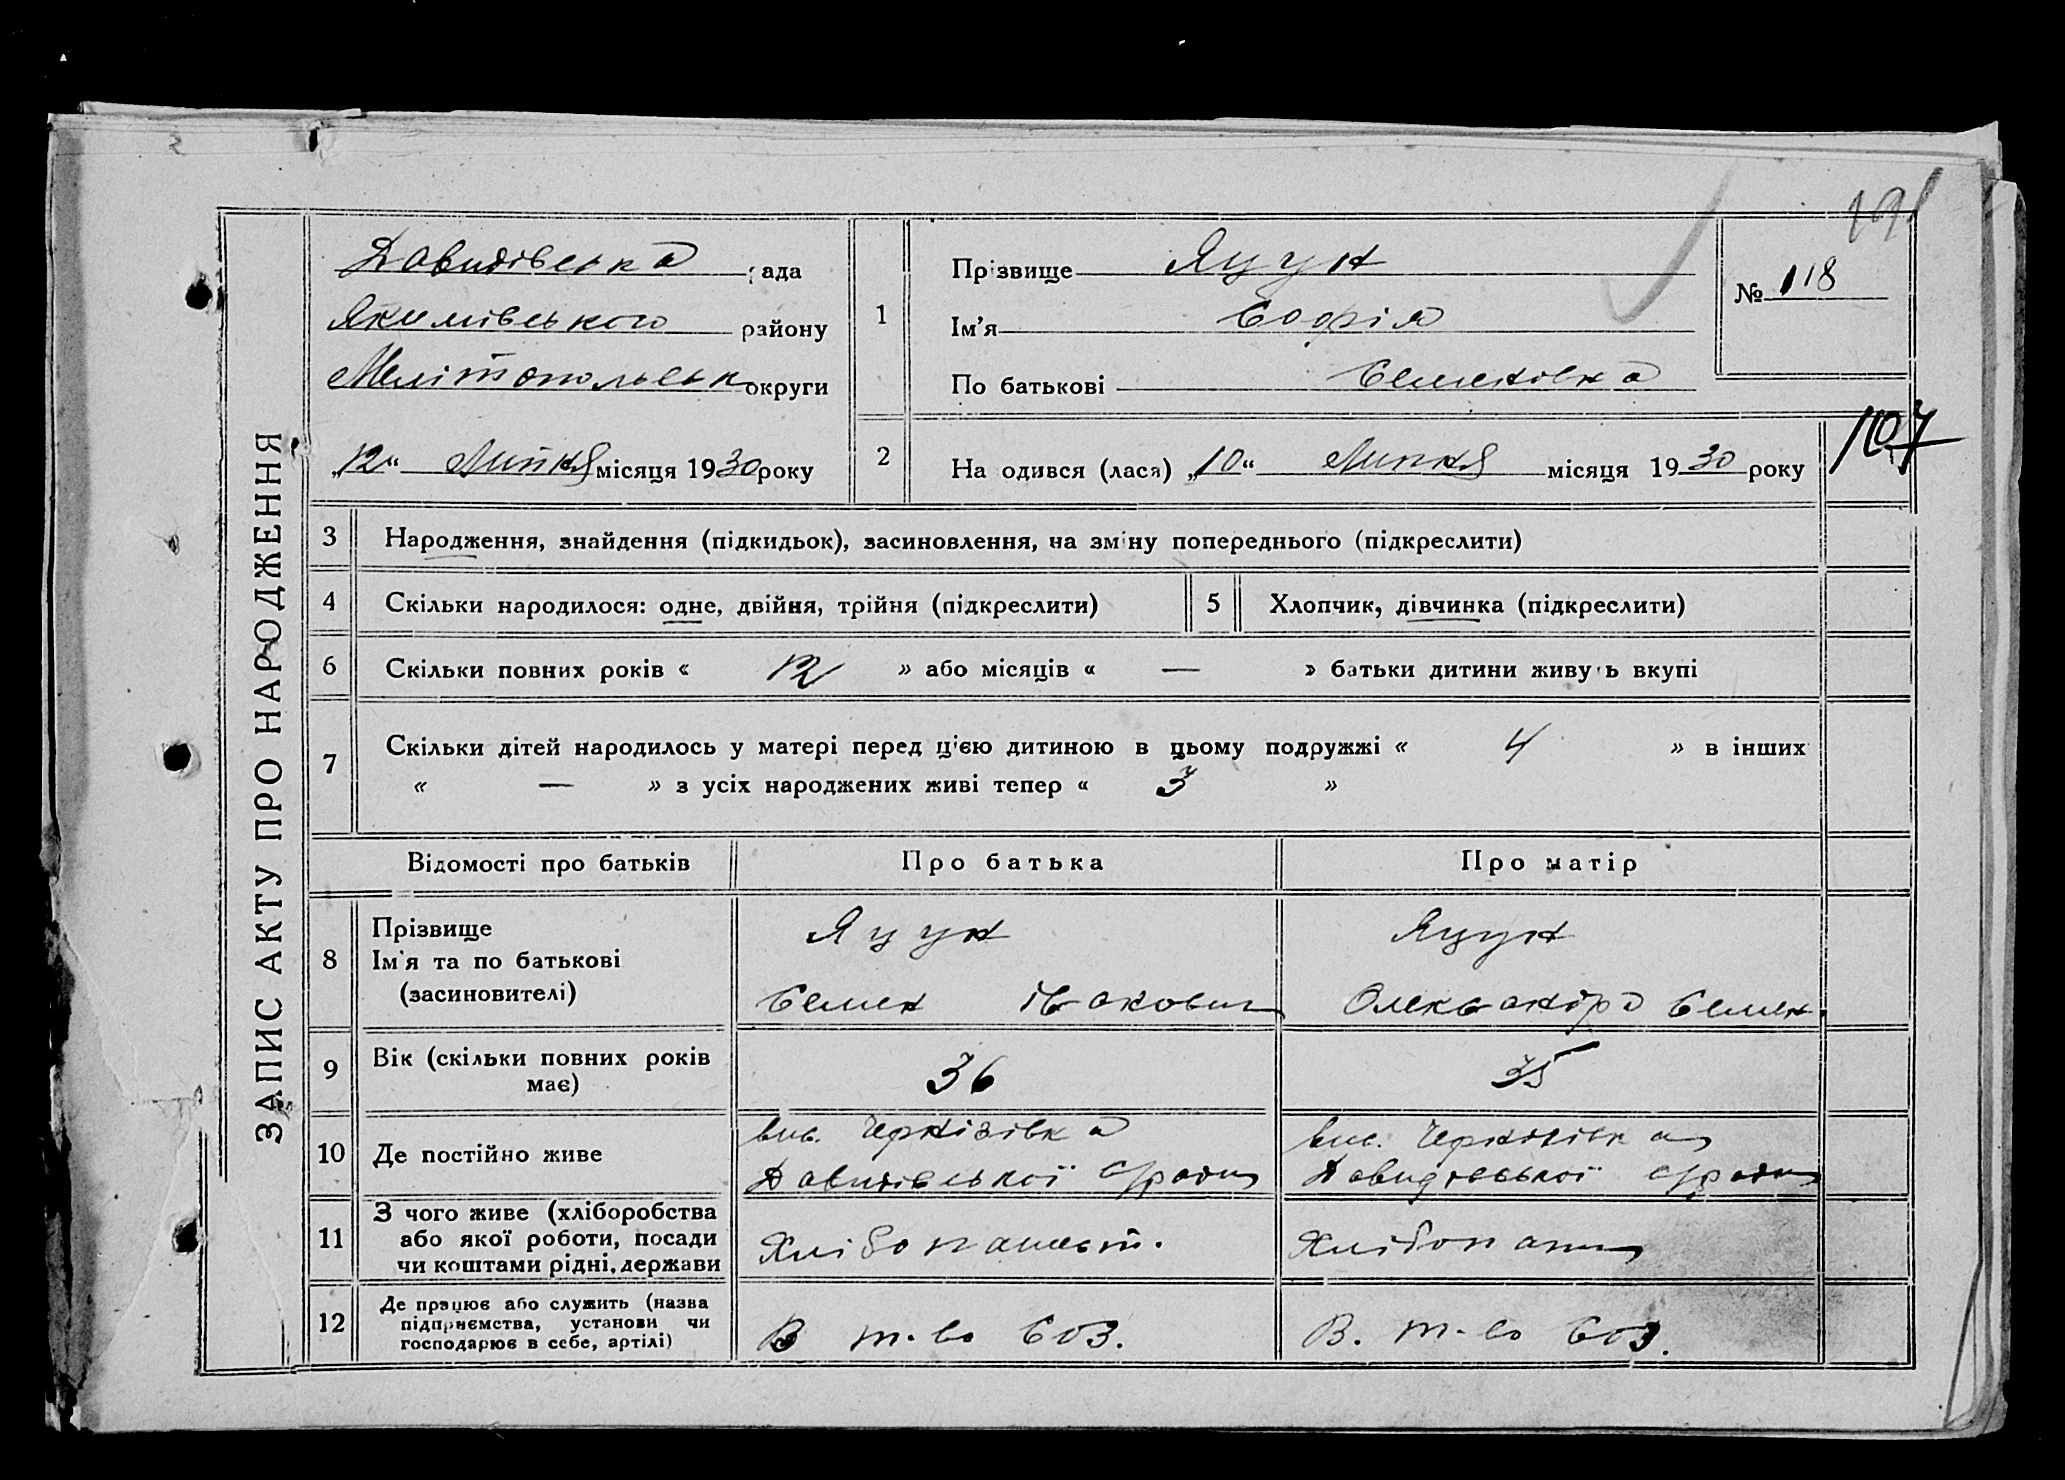 191
ЗАПИС АКТУ ПРО НАРОДЖЕННЯ
Давидівська рада
Якимівського району
Мелітопольськ округи
„12“ Липня місяця 1930 року
1
Прізвище Яцун
Ім'я Софія
По батькові Семенівна
№ 118
2
На одився (лася) „10“ Липня місяця 1930 року
107
3 Народження, знайдення (підкидьок), засиновлення, на зміну попереднього (підкреслити)
4 Скільки народилося: одне, двійня, трійня (підкреслити)
5 Хлопчик, дівчинка (підкреслити)
6 Скільки повних років « 12 » або місяців « — » батьки дитини живуть вкупі
7 Скільки дітей народилось у матері перед цією дитиною в цьому подружжі « 4 » в інших
« — » з усіх народжених живі тепер « 3 »
Відомості про батьків Про батька Про матір
8 Прізвище
Ім'я та по батькові
(засиновителі)
Яцун
Семен Ісакович
Яцун
Олександра Семен.
9 Вік (скільки повних років
має)
36
35
10 Де постійно живе
вис. Чернігівка
Давидівської с/ради
вис. Чернігівка
Давидівської с/ради
11 З чого живе (хліборобства
або якої роботи, посади
чи коштами рідні, держави
Хлібопашест.
Хлібопаш
12 Де працює або служить (назва
підприємства, установи чи
господарює в себе, артілі)
В т-во СОЗ.
В. т-во СОЗ.